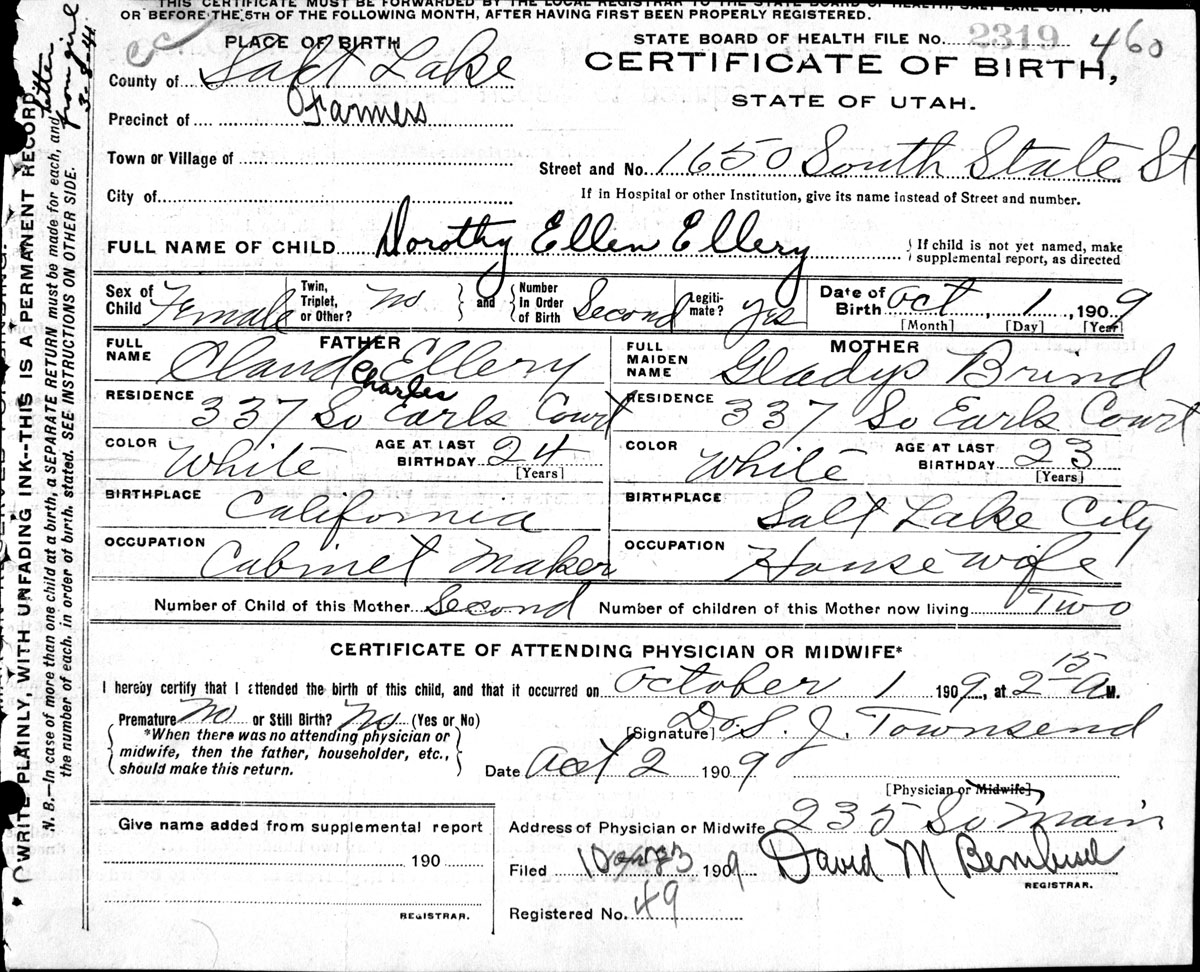 THIS CERTIFICATE MUST BE FORWARDED BY THE LOCAL REGISTRAR TO THE STATE BOARD OF HEALTH, SALT LAKE CITY, ON
OR BEFORE THE 5TH OF THE FOLLOWING MONTH, AFTER HAVING FIRST BEEN PROPERLY REGISTERED.
PLACE OF BIRTH
STATE BOARD OF HEALTH FILE No. 2319 460
County of Salt Lake
CERTIFICATE OF BIRTH,
STATE OF UTAH.
Precinct of Farmers
Town or Village of
Street and No. 1650 South State St
City of
If in Hospital or other Institution, give its name instead of Street and number.
FULL NAME OF CHILD Dorothy Ellen Ellery
If child is not yet named, make
supplemental report, as directed
Sex of Child Female Twin, Triplet, or Other? no and Number In Order of Birth Second Legiti-mate? yes Date of Birth Oct 1, 1909
[Month] [Day] [Year]
FATHER
FULL NAME Claud Charles Ellery
MOTHER
FULL MAIDEN NAME Gladys Brind
RESIDENCE 337 So Earls Court
RESIDENCE 337 So Earls Court
COLOR White AGE AT LAST BIRTHDAY 24 [Years]
COLOR White AGE AT LAST BIRTHDAY 23 [Years]
BIRTHPLACE California
BIRTHPLACE Salt Lake City
OCCUPATION Cabinet Maker
OCCUPATION House wife
Number of Child of this Mother Second Number of children of this Mother now living Two
CERTIFICATE OF ATTENDING PHYSICIAN OR MIDWIFE*
I hereby certify that I attended the birth of this child, and that it occurred on October 1 1909, at 2 15 A M.
Premature No or Still Birth? No (Yes or No)
[Signature] Dr S. J. Townsend
*When there was no attending physician or
midwife, then the father, householder, etc.,
should make this return.
Date Oct 2 1909
[Physician or Midwife]
Give name added from supplemental report
190
REGISTRAR.
Address of Physician or Midwife 235 So Main
Filed 1909 David M
REGISTRAR.
Registered No. 49
WRITE PLAINLY, WITH UNFADING INK--THIS IS A PERMANENT RECORD.
N. B.—In case of more than one child at a birth, a SEPARATE RETURN must be made for each, and
the number of each, in order of birth, stated. SEE INSTRUCTIONS ON OTHER SIDE.
letter
from girl
3-8-41